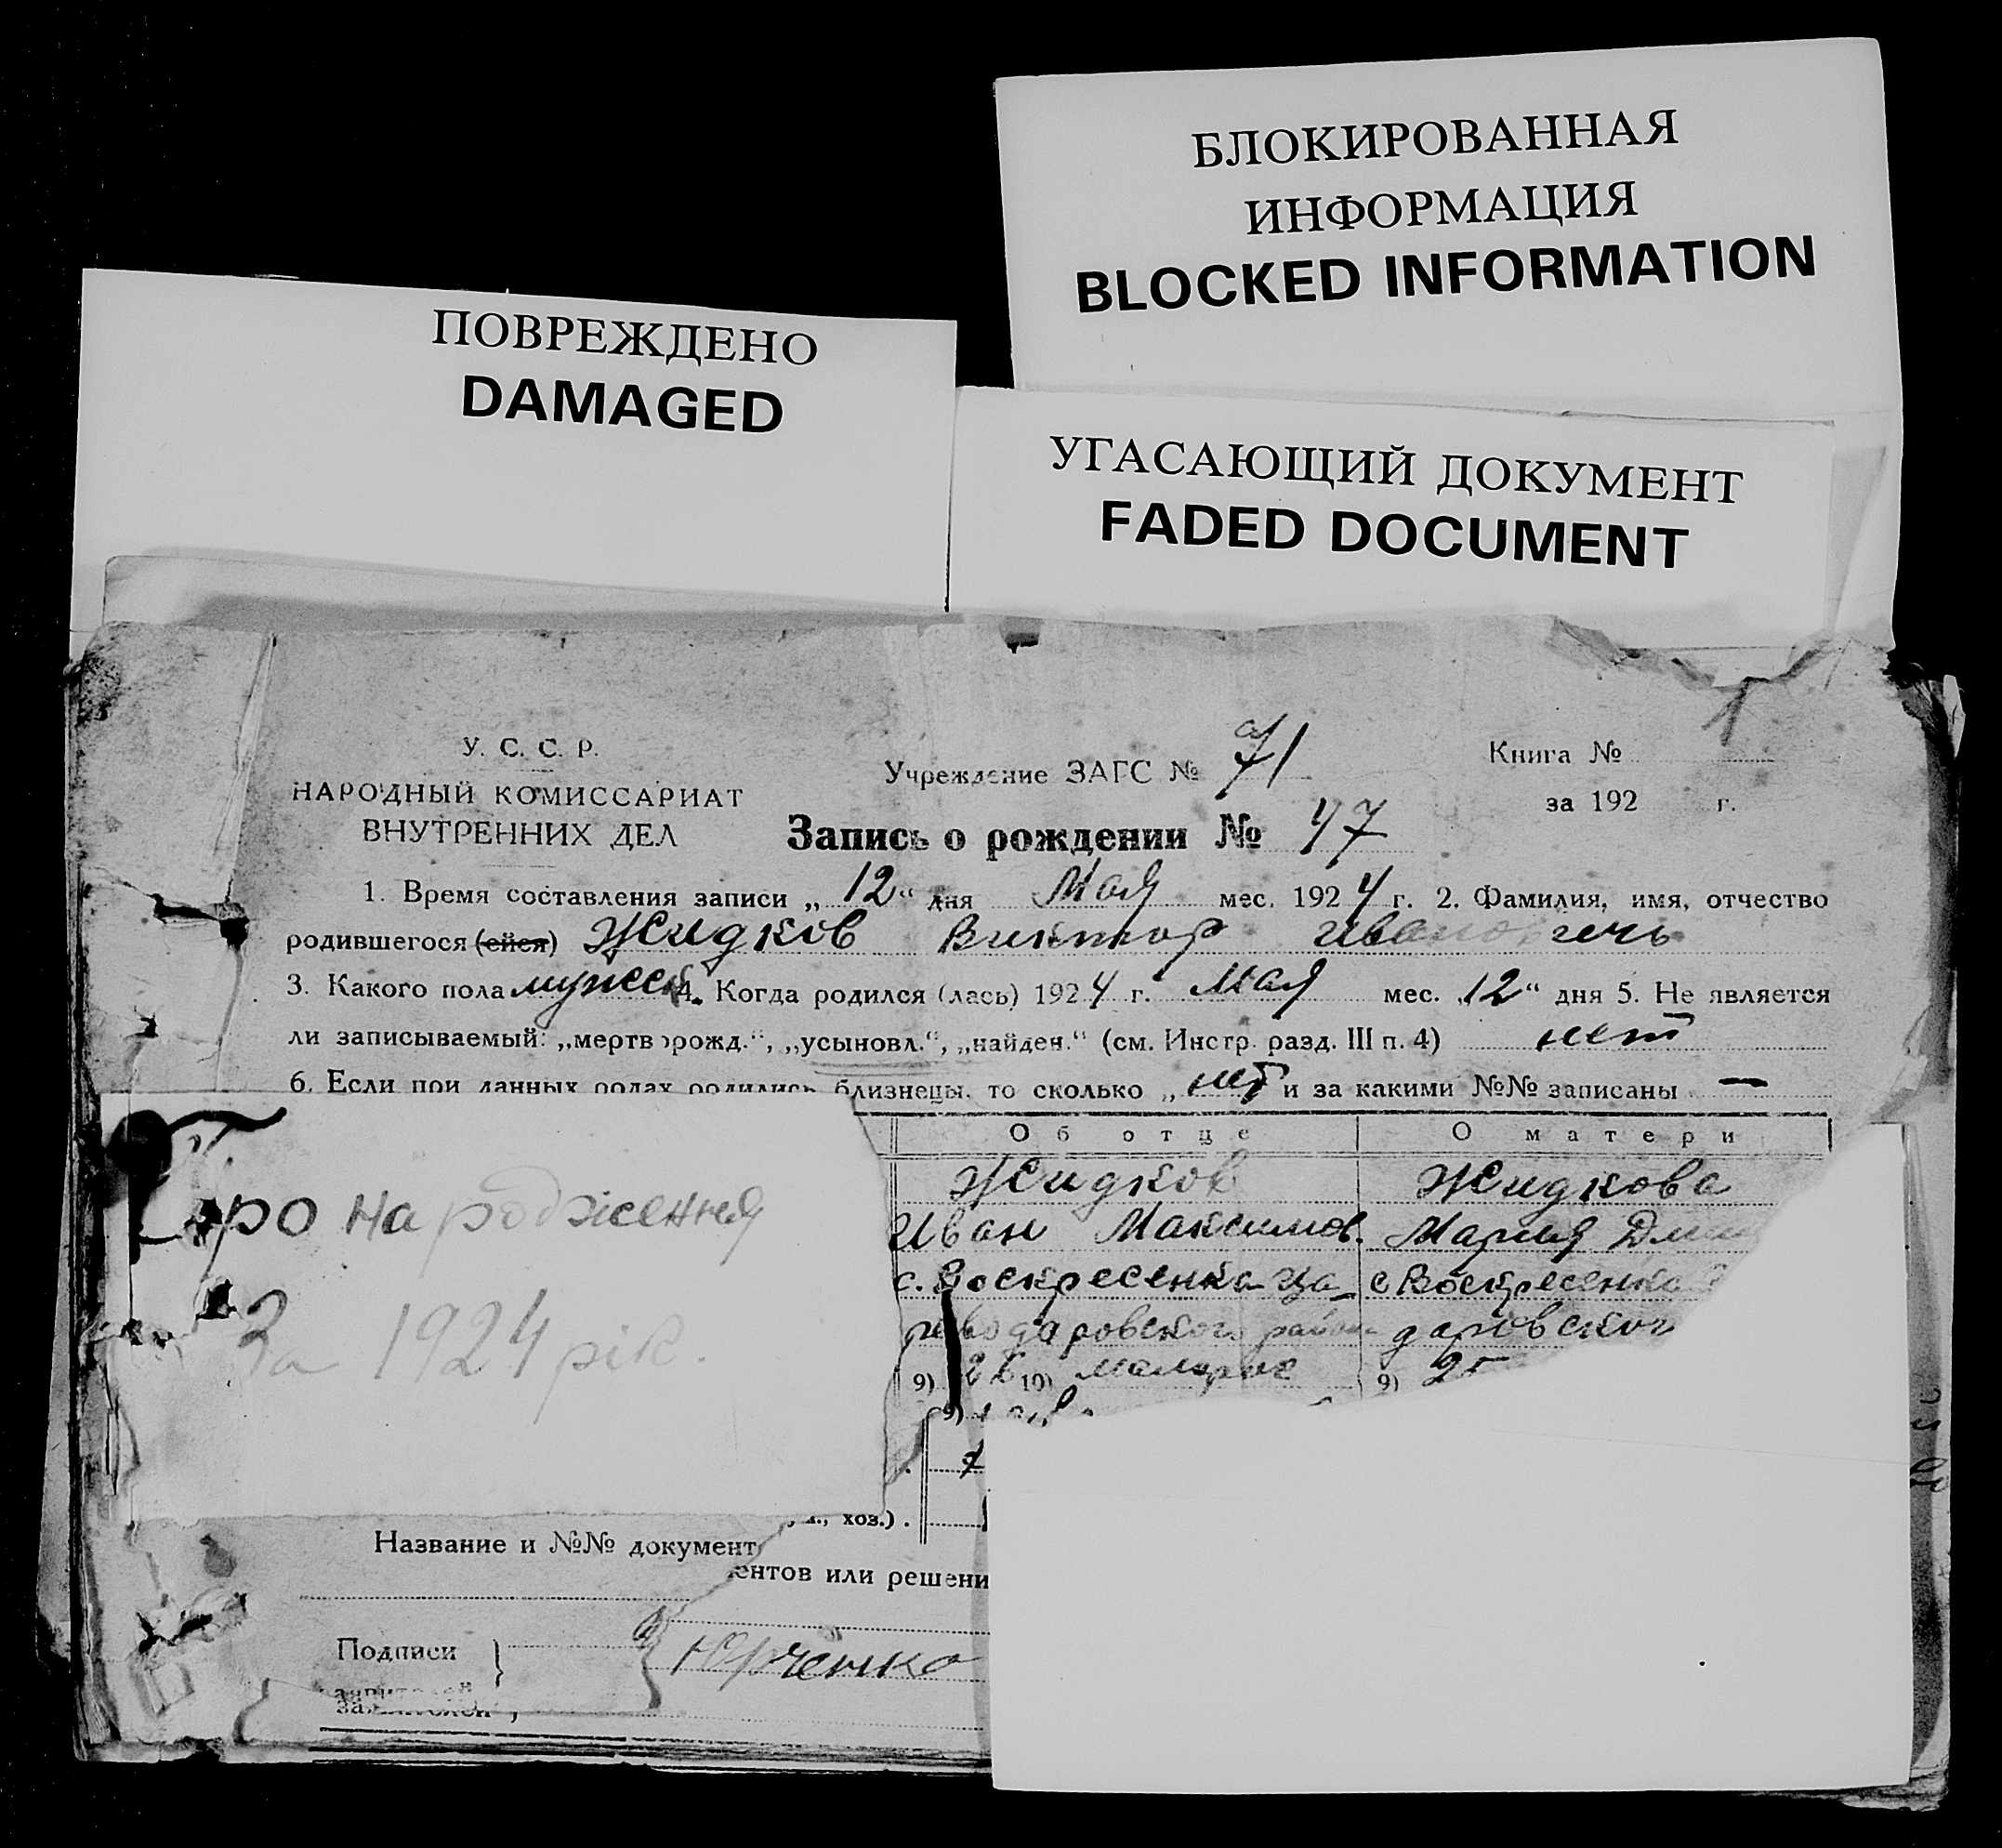 БЛОКИРОВАННАЯ
ИНФОРМАЦИЯ
BLOCKED INFORMATION
ПОВРЕЖДЕНО
DAMAGED
УГАСАЮЩИЙ ДОКУМЕНТ
FADED DOCUMENT
У. С. С. Р.
НАРОДНЫЙ КОМИССАРИАТ
ВНУТРЕННИХ ДЕЛ
Учреждение ЗАГС № 71
Книга №
за 192 г.
Запись о рождении № 47
1. Время составления записи „ 12 “ дня Мая мес. 1924 г. 2. Фамилия, имя, отчество
родившегося (ейся) Жидков Виктор Иванович
3. Какого пола мужск 4. Когда родился (лась) 1924 г. Мая мес. „12“ дня 5. Не является
ли записываемый: „мертворожд.“, „усыновл.“, „найден.“ (см. Инстр. разд. III п. 4) нет
6. Если при данных родах родились близнецы, то сколько „ нет и за какими №№ записаны —
Об отце О матери
Жидков Жидкова
Иван Максимов. Мария
с. Воскресенка Ца- с Воскресенка
района
9) 10) 9) 25
Про народження
За 1924 рік.
хоз.) .
Название и №№ документ
ентов или решени
Подписи Юрченко